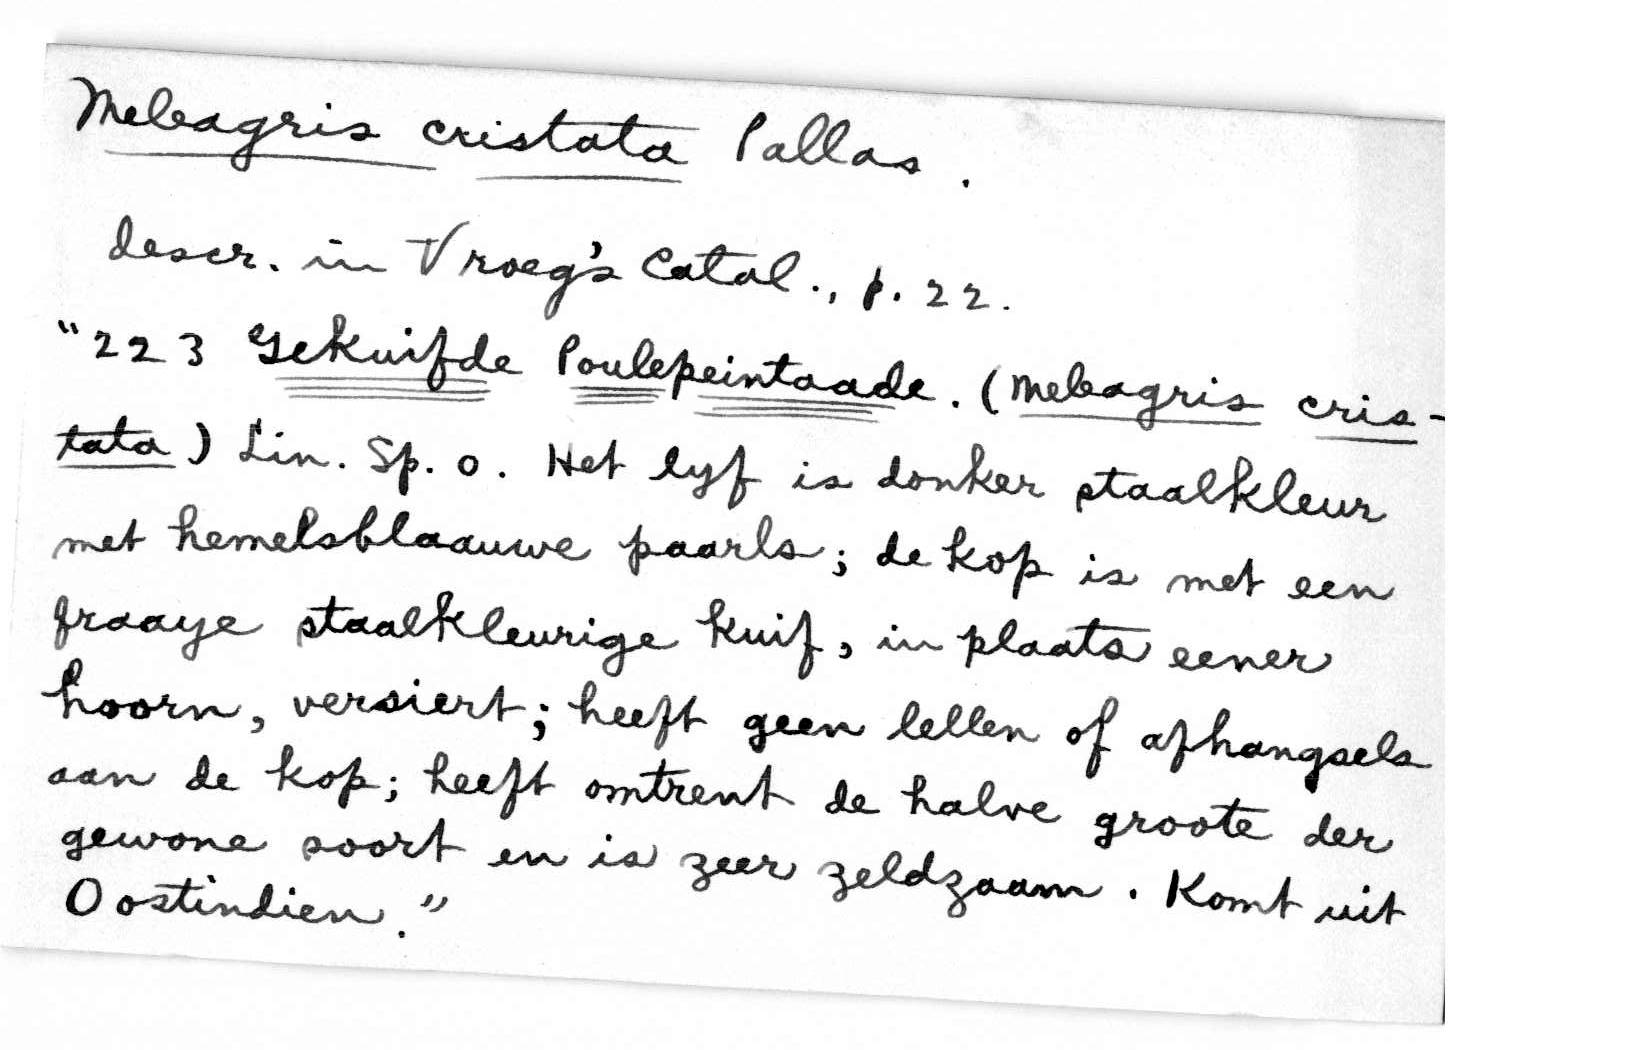 Meleagris cristata Pallas.
descr. in Vroeg's Catal., p. 22.
"223 Gekuifde Poulepeintaade. (Meleagris cris-
tata) Lin. Sp. o. Het lyf is donker staalkleur
met hemelsblaauwe paarls; de kop is met een
fraaye staalkleurige kuif, in plaats eener
hoorn, versiert; heeft geen lellen of afhangsels
aan de kop; heeft omtrent de halve groote der
gewone soort en is zeer zeldzaam. Komt uit
Oostindien."